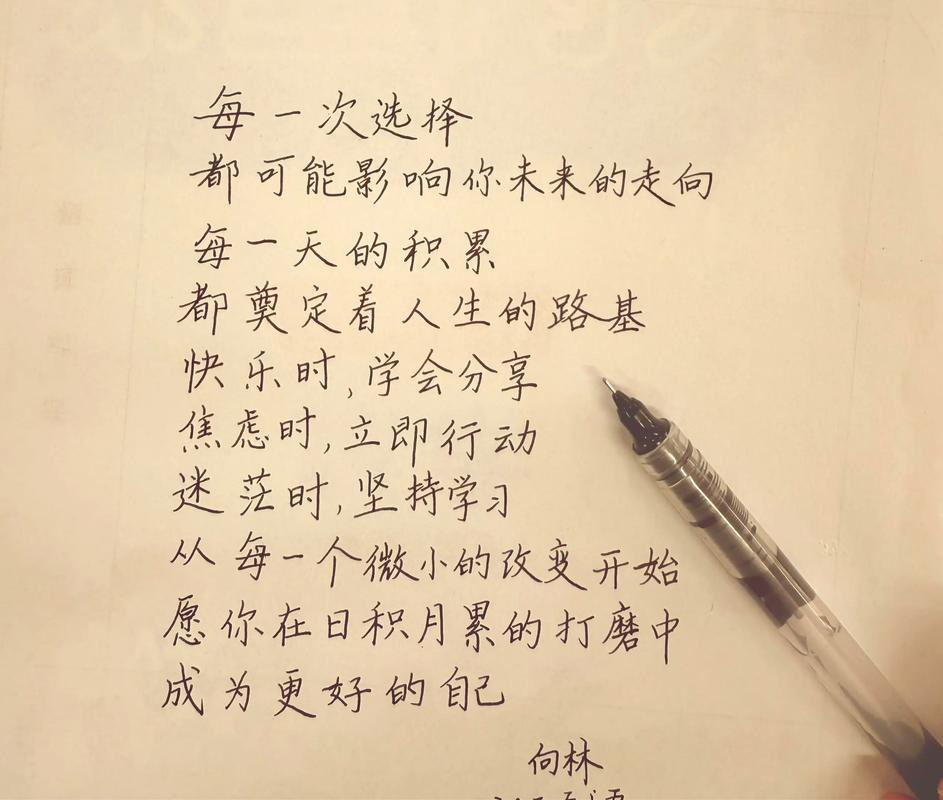 每一次选择
都可能影响你未来的走向
每一天的积累
都奠定着人生的路基
快乐时,学会分享
焦虑时,立即行动
迷茫时,坚持学习
从每一个微小的改变开始
愿你在日积月累的打磨中
成为更好的自己
向林